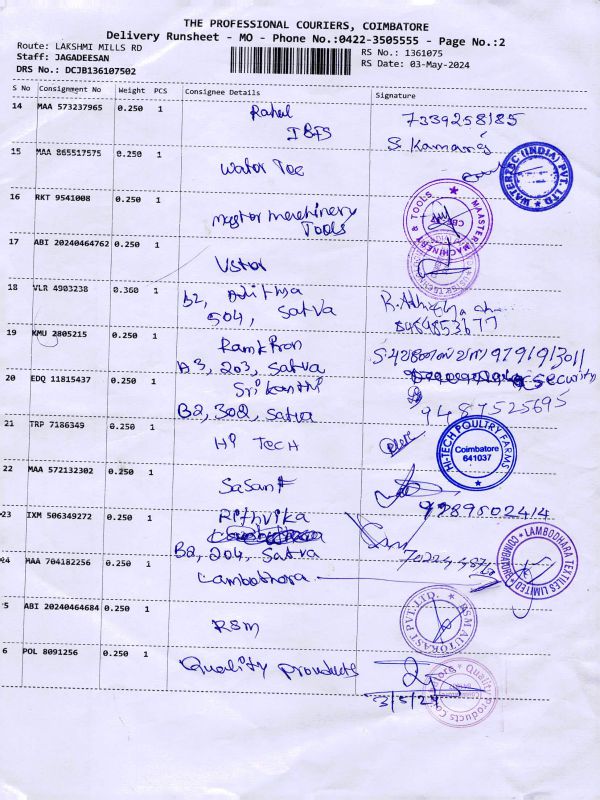 THE PROFESSIONAL COURIERS, COIMBATORE
Delivery Runsheet - MO - Phone No.:0422-3505555 - Page No.:2
Route: LAKSHMI MILLS RD
RS No.: 1361075
Staff: JAGADEESAN
RS Date: 03-May-2024
DRS No.: DCJB136107502
S No Consignment No Weight PCS Consignee Details Signature
14 MAA 573237965 0.250 1 Rahul 7339258185
IBFS S. Kamaraj
15 MAA 865517575 0.250 1 Water Tec
WATERTEC (INDIA) PVT. LTD
16 RKT 9541008 0.250 1 Master machinery
Tools
MAASTER MACHINERY & TOOLS
CBE
17 ABI 20240464762 0.250 1 Vstar
18 VLR 4903238 0.360 1 B2, Aditma
504, Satva
8989853677
19 KMU 2805215 0.250 1 Ramkiron
9791913011
A3, 203, Satva security
20 EDQ 11815437 0.250 1 Srikanthi
B2, 302, Satva 9487525695
21 TRP 7186349 0.250 1 Hi TecH
HI-TECH POULTRY FARMS
Coimbatore
641037
22 MAA 572132302 0.250 1 Sasant
9989502414
23 IXM 506349272 0.250 1 Rithvika
B2, 204, Satva
24 MAA 704182256 0.250 1 Lambothara
LAMBODHARA TEXTILES LIMITED
5 ABI 20240464684 0.250 1 RSM
RSM AUTOKAST PVT. LTD.
6 POL 8091256 0.250 1 Quality prouducts
Quality Products
3/5/24